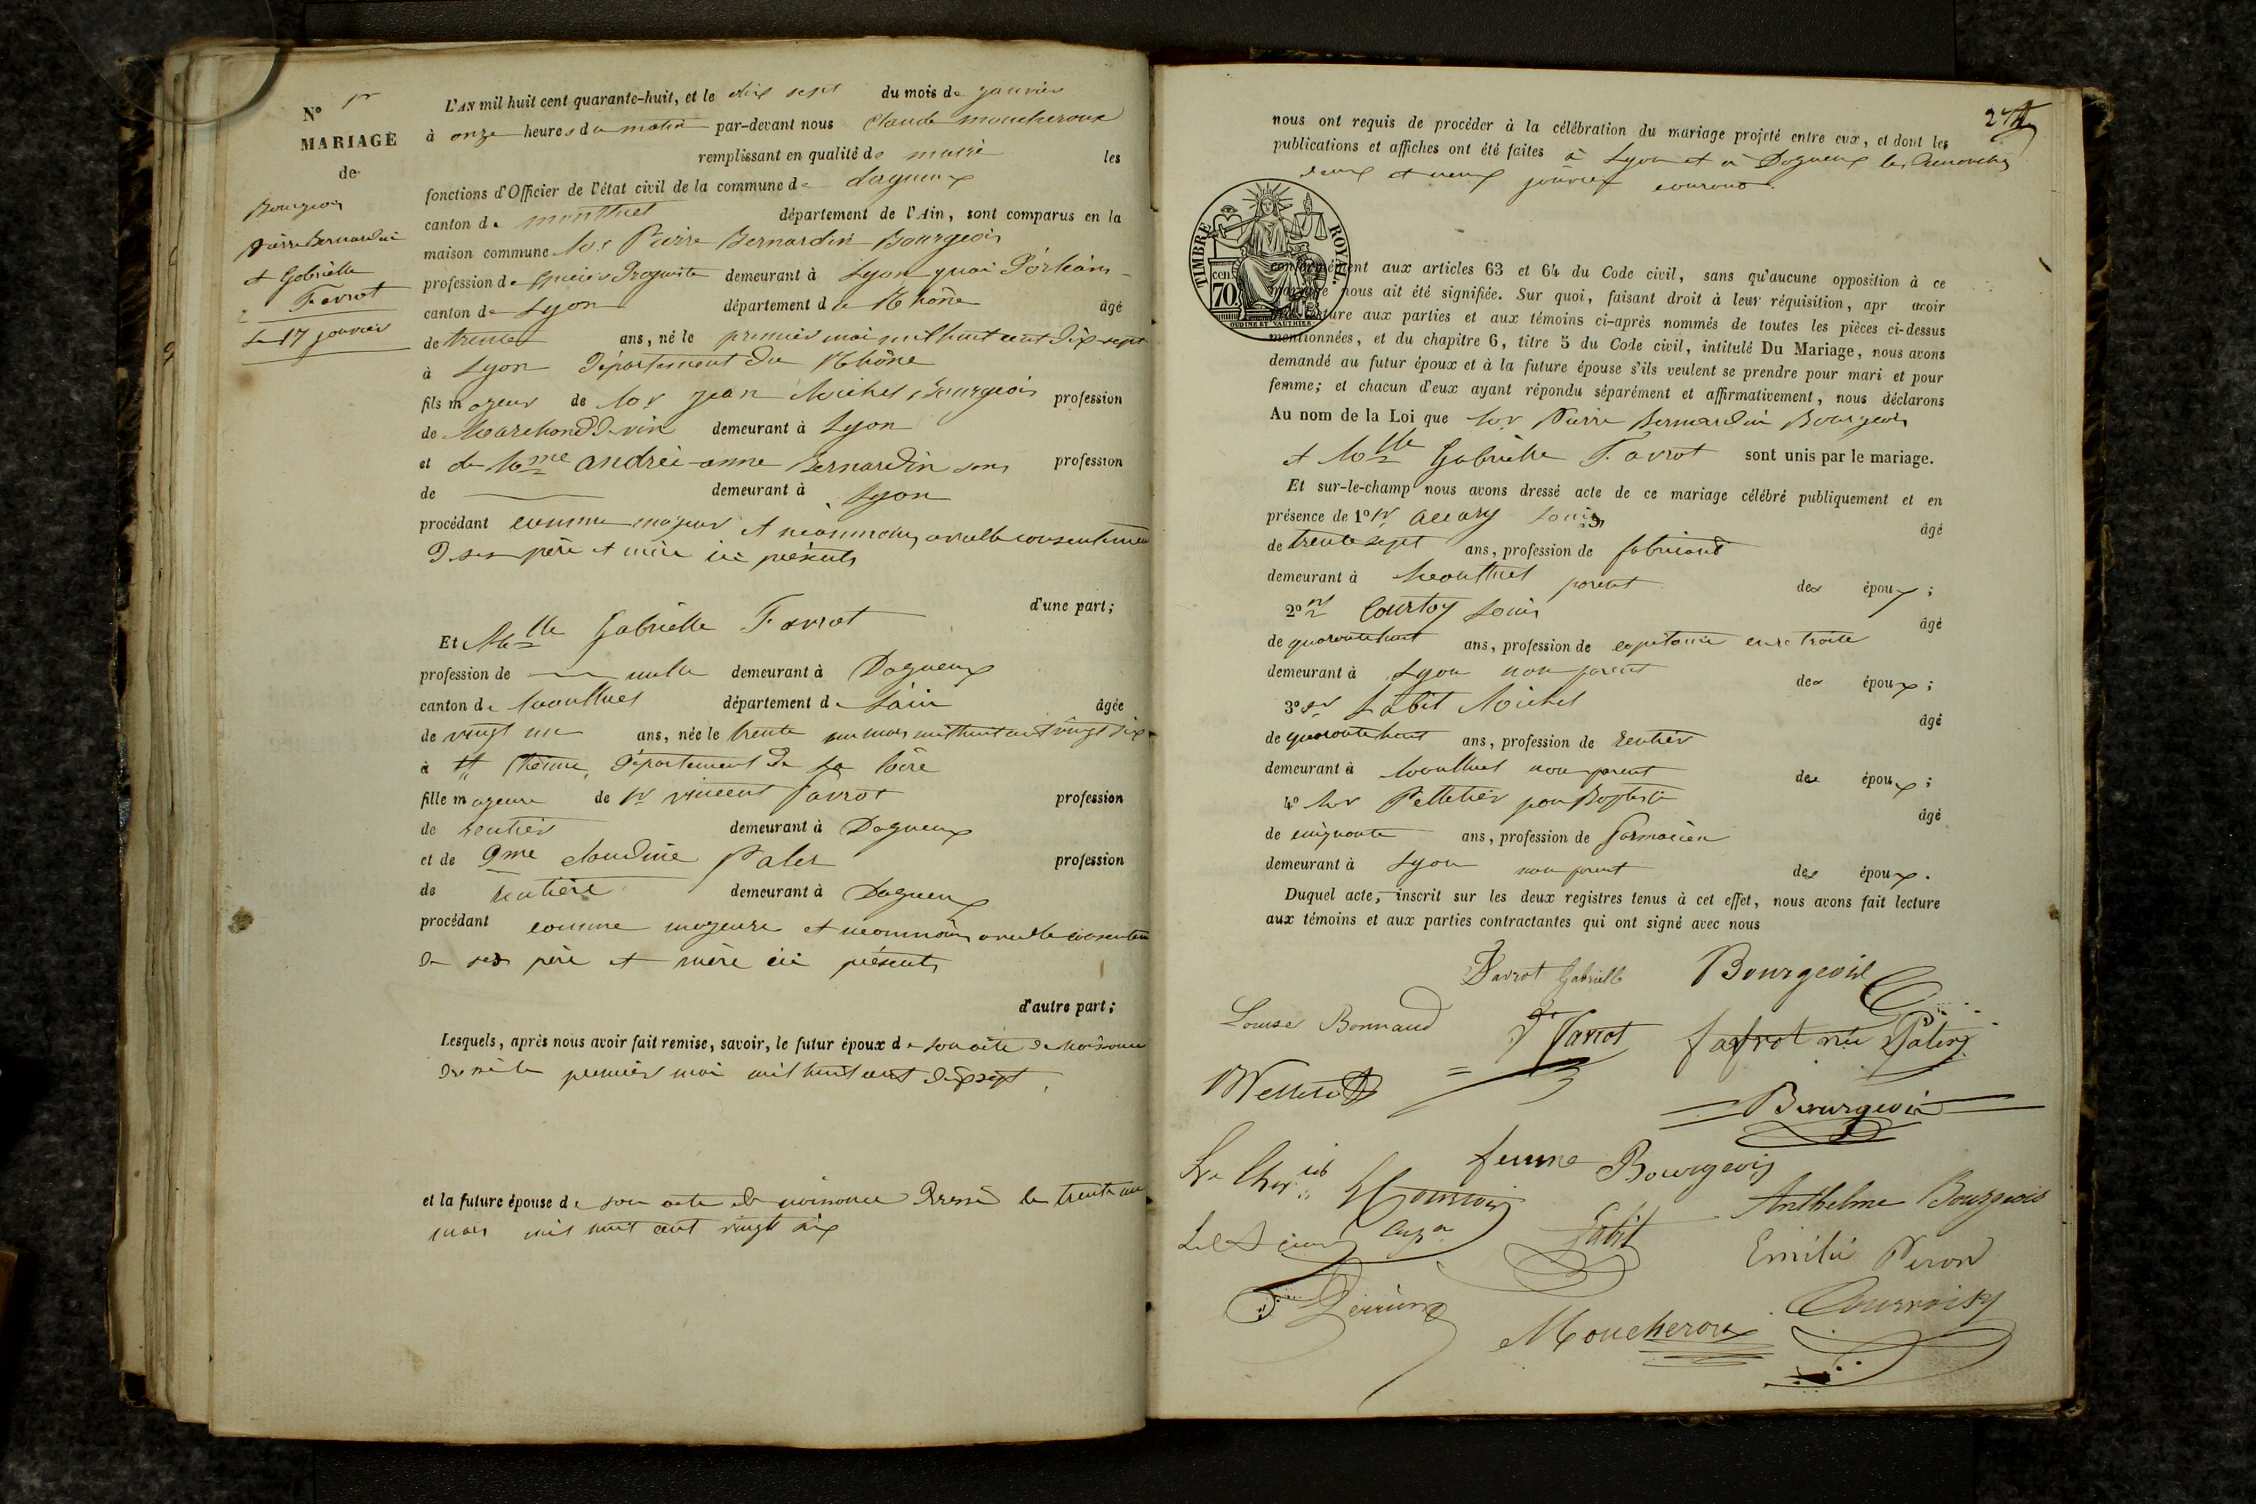 N° 1er
MARIAGE
de
Bourgeois
Pierre Bernardin
et Gabrielle
Favrot
le 17 janvier
L'AN mil huit cent quarante-huit, et le dix sept du mois de janvier
à onze heures du matin par-devant nous Claude moucheroux
remplissant en qualité de maire les
fonctions d'Officier de l'état civil de la commune de dagneux
canton de montluel département de l'Ain, sont comparus en la
maison commune Mr Pierre Bernardin Bourgeois
profession de épicier Droguiste demeurant à Lyon quai d'orléans
canton de Lyon département du Rhône âgé
de trente ans, né le premier mai mil huit cent dix sept
à Lyon Département du Rhône
fils majeur de Mr jean Michel Bourgeois profession
de Marchand de vin demeurant à Lyon
et de Mme andrée anne Bernardin sans profession
de demeurant à Lyon
procédant comme majeur et néanmoins avec le consentement
de ses père et mère ici présents
d'une part;
Et Mlle Gabrielle Favrot
profession de nulle demeurant à Dagneux
canton de Montluel département de L'ain âgée
de vingt un ans, née le trente un mars mil huit cent vingt six
à St Département de la loire
fille majeure de Sr vincent favrot profession
de rentier demeurant à Dagneux
et de Dme claudine Palet profession
de rentière demeurant à Dagneux
procédant comme majeure et néanmoins avec le consentem
de ses père et mère ici présents
d'autre part;
Lesquels, après nous avoir fait remise, savoir, le futur époux de son acte de Naissance
dressé le premier mai mil huit cent dix sept
et la future épouse de son acte de naissance Dressé le trente un
mars mil huit cent vingt six
nous ont requis de procéder à la célébration du mariage projeté entre eux, et dont les
publications et affiches ont été faites à Lyon et à Dagneux les dimanches
deux et neuf janvier courant
TIMBRE ROYAL.
cen
70
OUDINE ET VAUTHIER
conformément aux articles 63 et 64 du Code civil, sans qu'aucune opposition à ce
mariage nous ait été signifiée. Sur quoi, faisant droit à leur réquisition, apr avoir
lecture aux parties et aux témoins ci-après nommés de toutes les pièces ci-dessus
mentionnées, et du chapitre 6, titre 5 du Code civil, intitulé Du Mariage, nous avons
demandé au futur époux et à la future épouse s'ils veulent se prendre pour mari et pour
femme; et chacun d'eux ayant répondu séparément et affirmativement, nous déclarons
Au nom de la Loi que Mr Pierre Bernardin Bourgeois
et Mlle Gabrielle Favrot sont unis par le mariage.
Et sur-le-champ nous avons dressé acte de ce mariage célébré publiquement et en
présence de 1° Sr allary Louis âgé
de trente sept ans, profession de fabricant
demeurant à Montluel parent des époux;
2° Sr Courtoy Louis âgé
de quarante huit ans, profession de capitaine en retraite
demeurant à Lyon non parent des époux;
3° Sr Labit Michel âgé
de quarante huit ans, profession de rentier
demeurant à Montluel non parent des époux;
4° Mr Pelletier jean Baptiste âgé
de cinquante ans, profession de farmacien
demeurant à Lyon non parent des époux.
Duquel acte, inscrit sur les deux registres tenus à cet effet, nous avons fait lecture
aux témoins et aux parties contractantes qui ont signé avec nous
Favrot Gabrielle Bourgeois
Louise Bonnaud Favrot favrot née Paley
Bourgeois
femme Bourgeois
Anthelme Bourgeois
Labit
Emilie Peron
Perrier
Moucheroux